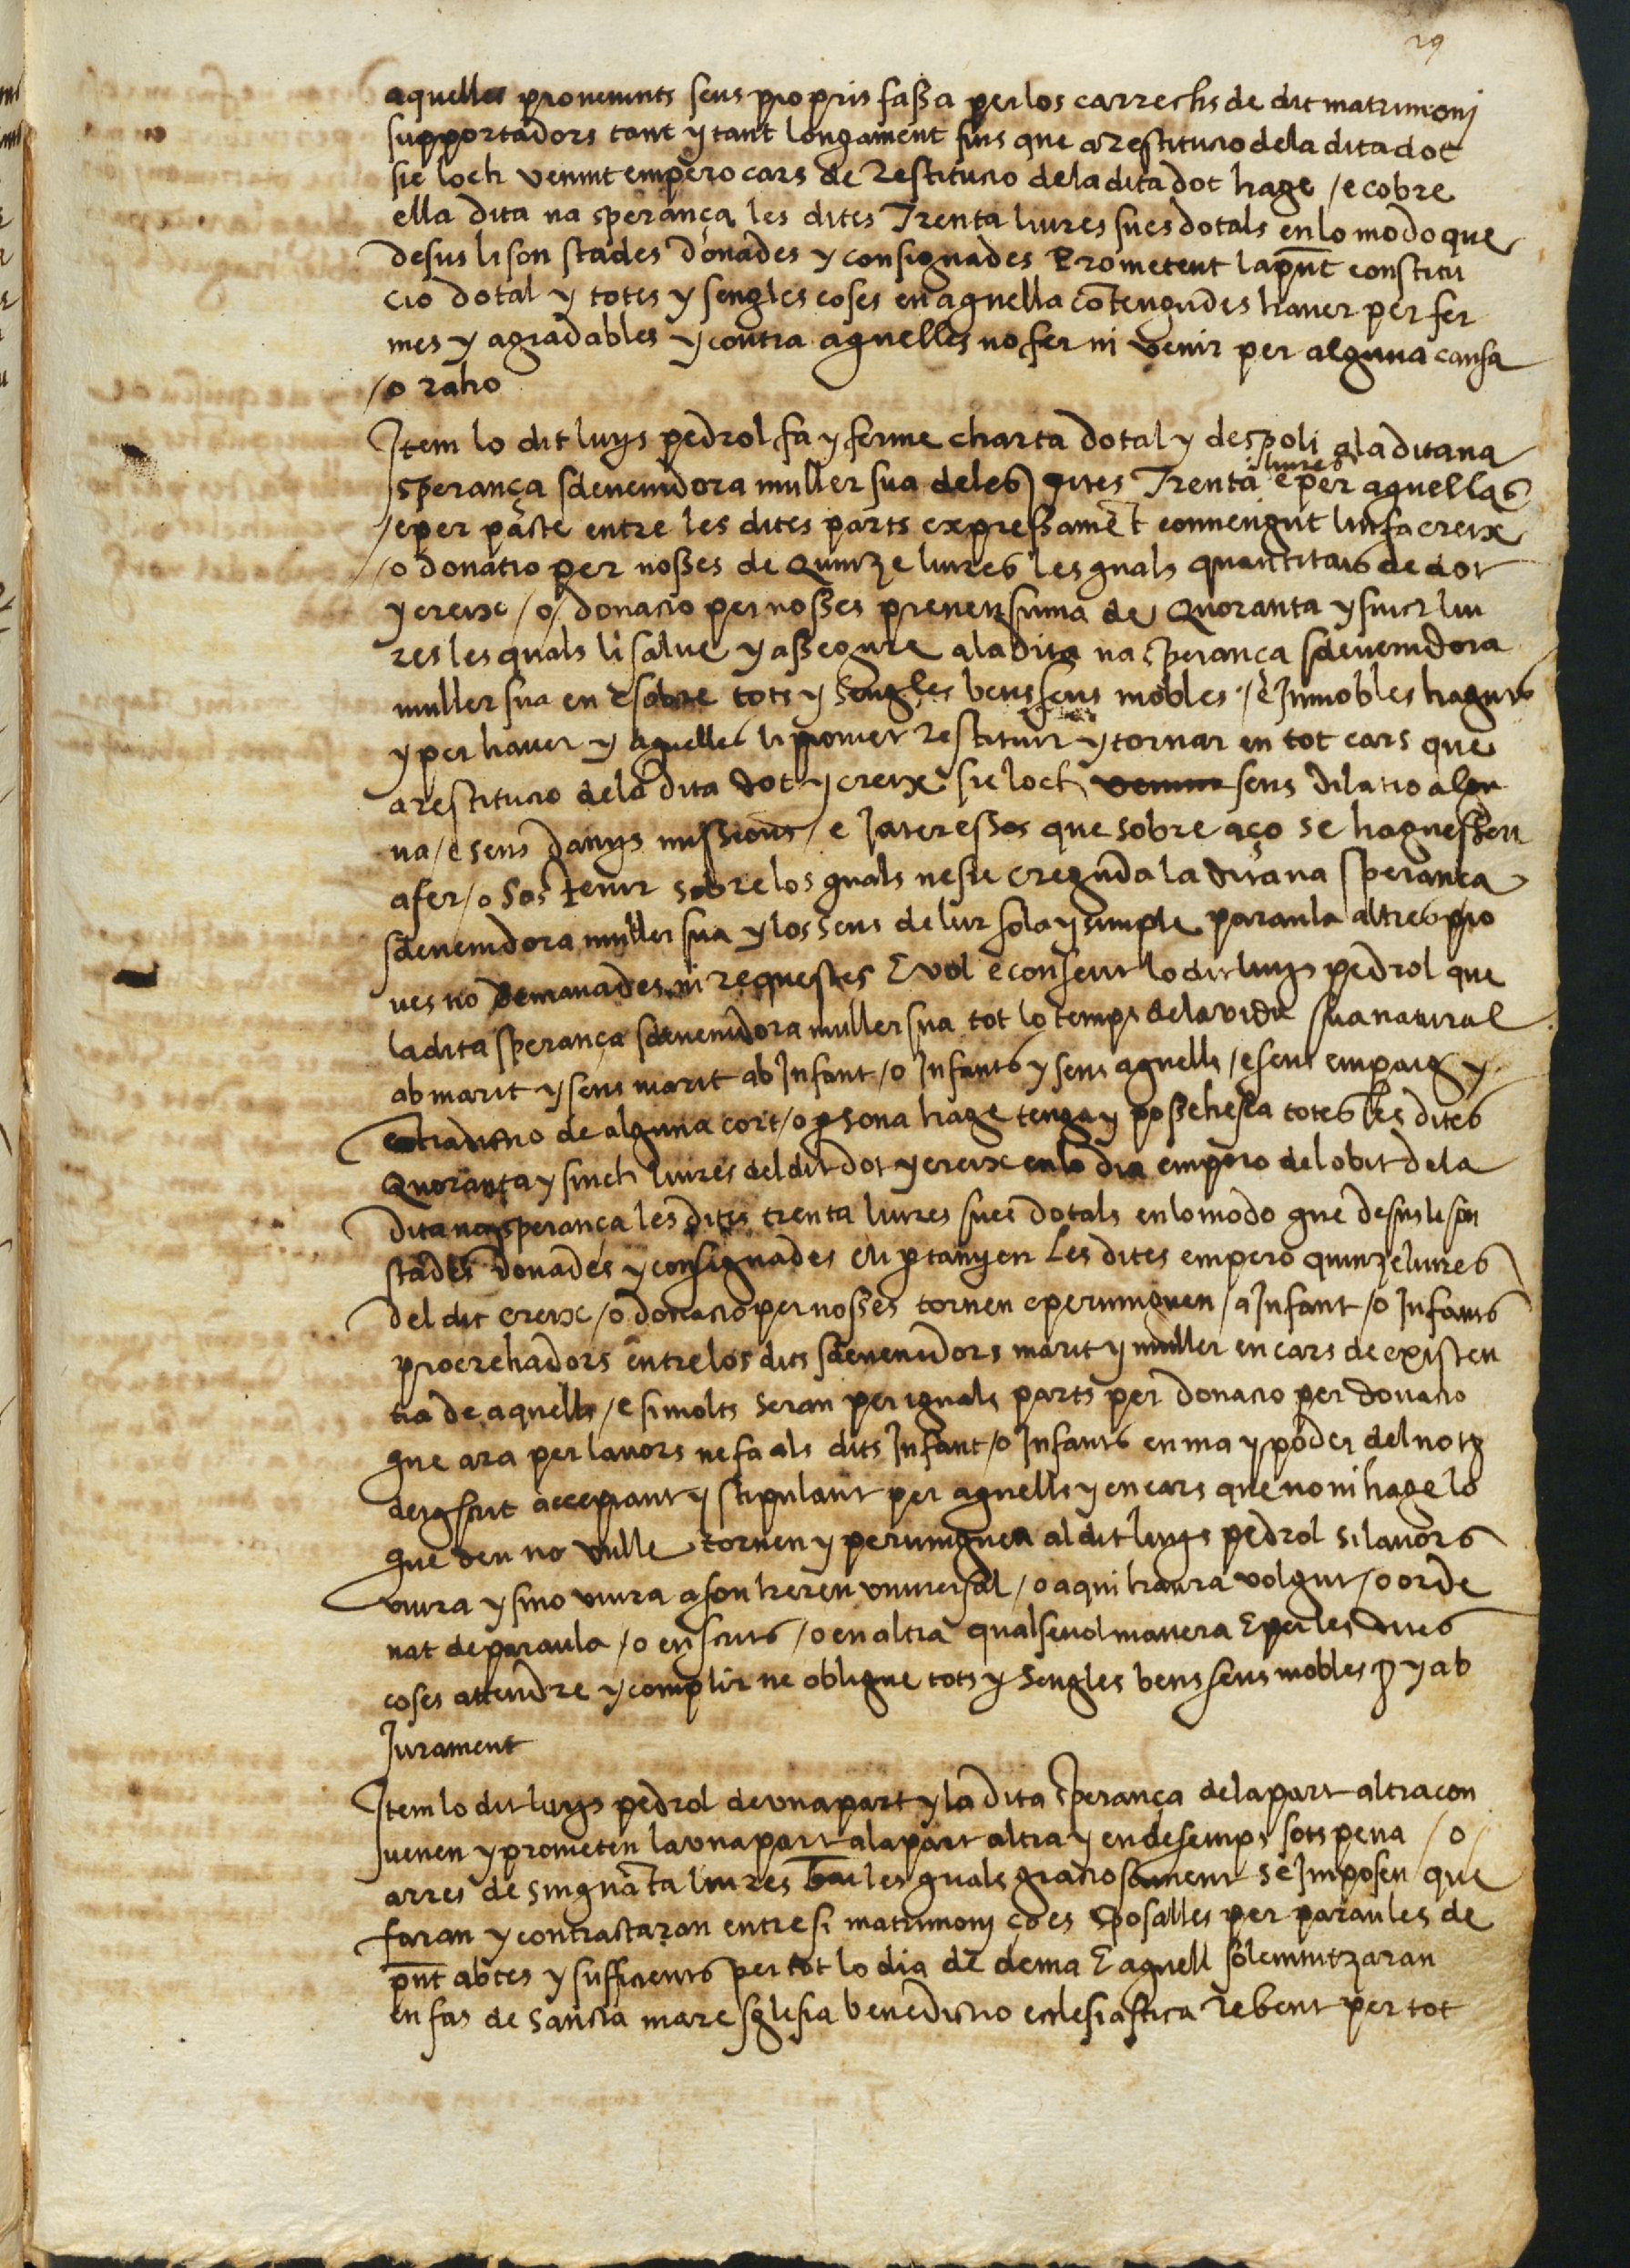 29
aquelles provenints seus propris fassa per los carrechs de dit matrimonj
supportadors tant y tant longament fins que a restitucio de la dita dot
sie loch venint empero cars de restitucio de la dita dot hage / e cobre
ella dita na sperança les dites Trenta liures sues dotals en lo modo que
desus li son stades donades y consignades Prometent la pnt constitu
cio dotal y totes y sengles coses en aquella contengudes haver per fer
mes y agradables y contra aquelles no fer ni venir per alguna causa
/ o raho
Item lo dit luys pedrol fa y ferme charta dotal y despoli a la dita na
sperança sdevenidora muller sua de les dites Trenta liures e per aquellas
/ e per pacte entre les dites parts expressament convengut li fa creix
/ o donatio per nosses de Quinze liures les quals quantitats de dot
y creix / o / donacio per nosses prenen suma de Quoranta y sinch liu
res les quals li salve y assegure a la dita na sperança sdevenidora
muller sua en e sobre tots y sengles bens seus mobles / e inmobles haguts
y per haver y aquelles li promet restituir y tornar en tot cars que
a restitucio de la dita dot y creix sie loch sens dilatio algu
na / e sens danys missions / e Interesses que sobre aço se haguessen
a fer / o sostenir sobre los quals ne sie creguda la dita na sperança
sdevenidora muller sua y los seus de lur sola y simple paraula altres pro
ves no demanades ni requestes E vol e consent lo dit luys pedrol que
la dita sperança sdevenidora muller sua tot lo temps de la vida sua natural
ab marit y sens marit ab Infant / o Infants y sens aquells / e sens empaig y
contradictio de alguna cort / o psona hage tenga y possehesca totes les dites
Quoranta y sinch liures del dit dot y creix en lo dia empero del obit de la
dita na sperança les dites trenta liures sues dotals en lo modo que desus li son
stades donades y consignades li ptanyen Les dites empero quinze liures
del dit creix / o donacio per nosses tornen e pervinguen / a Infant / o Infants
procrehadors entre los dits sdevenidors marit y muller en cars de existen
tia de aquells / e si molts seran per iguals parts per donacio per donacio
que ara per lavors ne fa als dits Infant / o Infants en ma y poder del not
devall scrit acceptant y stipulant per aquells y en cars que no ni hage lo
que deu no vulle tornen y pervinguen al dit luys pedrol si lavors
viura y si no viura a son hereu universal / o a qui haura volgut / o orde
nat de paraula / o en scrits / o en altra qualsevol manera E per les dites
coses attendre y complir ne obligue tots y sengles bens seus mobles y ab
Jurament
Item lo dit luys pedrol de una part y la dita sperança de la part altra con
venen y prometen la una part a la part altra y endesemps sots pena / o /
arres de sinquanta liures les quals graciosament se Imposen que
faran y contractaran entre si matrimonj ço es sposalles per paraules de
pnt abtes y sufficients per tot lo dia de dema E aquell solemnitzaran
en fas de sancta mare sglesia benedictio eclesiastica rebent per tot